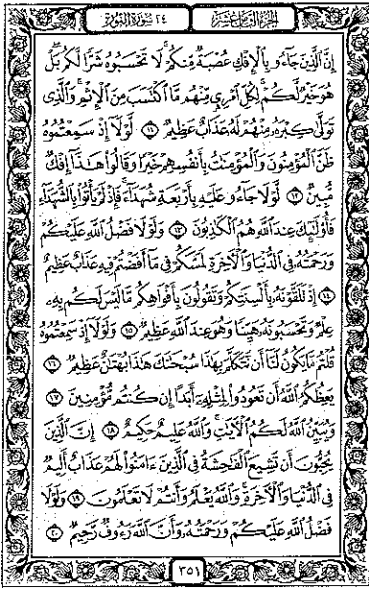 الجزء الثامن عشر ٢٤ سورة النور
إِنَّ ٱلَّذِينَ جَآءُو بِٱلْإِفْكِ عُصْبَةٌ مِّنكُمْ ۚ لَا تَحْسَبُوهُ شَرًّا لَّكُم ۖ بَلْ
هُوَ خَيْرٌ لَّكُمْ ۚ لِكُلِّ ٱمْرِئٍ مِّنْهُم مَّا ٱكْتَسَبَ مِنَ ٱلْإِثْمِ ۚ وَٱلَّذِى
تَوَلَّىٰ كِبْرَهُۥ مِنْهُمْ لَهُۥ عَذَابٌ عَظِيمٌ ١١ لَّوْلَآ إِذْ سَمِعْتُمُوهُ
ظَنَّ ٱلْمُؤْمِنُونَ وَٱلْمُؤْمِنَٰتُ بِأَنفُسِهِمْ خَيْرًا وَقَالُوا۟ هَٰذَآ إِفْكٌ
مُّبِينٌ ١٢ لَّوْلَا جَآءُو عَلَيْهِ بِأَرْبَعَةِ شُهَدَآءَ ۚ فَإِذْ لَمْ يَأْتُوا۟ بِٱلشُّهَدَآءِ
فَأُو۟لَٰٓئِكَ عِندَ ٱللَّهِ هُمُ ٱلْكَٰذِبُونَ ١٣ وَلَوْلَا فَضْلُ ٱللَّهِ عَلَيْكُمْ
وَرَحْمَتُهُۥ فِى ٱلدُّنْيَا وَٱلْءَاخِرَةِ لَمَسَّكُمْ فِى مَآ أَفَضْتُمْ فِيهِ عَذَابٌ عَظِيمٌ
١٤ إِذْ تَلَقَّوْنَهُۥ بِأَلْسِنَتِكُمْ وَتَقُولُونَ بِأَفْوَاهِكُم مَّا لَيْسَ لَكُم بِهِۦ
عِلْمٌ وَتَحْسَبُونَهُۥ هَيِّنًا وَهُوَ عِندَ ٱللَّهِ عَظِيمٌ ١٥ وَلَوْلَآ إِذْ سَمِعْتُمُوهُ
قُلْتُم مَّا يَكُونُ لَنَآ أَن نَّتَكَلَّمَ بِهَٰذَا سُبْحَٰنَكَ هَٰذَا بُهْتَٰنٌ عَظِيمٌ ١٦
يَعِظُكُمُ ٱللَّهُ أَن تَعُودُوا۟ لِمِثْلِهِۦٓ أَبَدًا إِن كُنتُم مُّؤْمِنِينَ ١٧
وَيُبَيِّنُ ٱللَّهُ لَكُمُ ٱلْءَايَٰتِ ۚ وَٱللَّهُ عَلِيمٌ حَكِيمٌ ١٨ إِنَّ ٱلَّذِينَ
يُحِبُّونَ أَن تَشِيعَ ٱلْفَٰحِشَةُ فِى ٱلَّذِينَ ءَامَنُوا۟ لَهُمْ عَذَابٌ أَلِيمٌ
فِى ٱلدُّنْيَا وَٱلْءَاخِرَةِ ۚ وَٱللَّهُ يَعْلَمُ وَأَنتُمْ لَا تَعْلَمُونَ ١٩ وَلَوْلَا
فَضْلُ ٱللَّهِ عَلَيْكُمْ وَرَحْمَتُهُۥ وَأَنَّ ٱللَّهَ رَءُوفٌ رَّحِيمٌ ٢٠
٣٥١